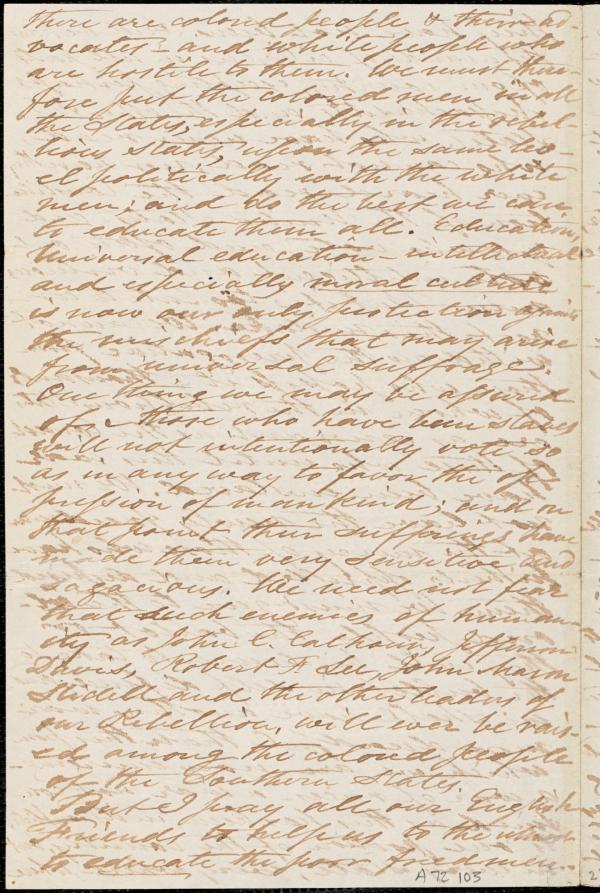 there are colored people & their ad-
vocates – and white people who
are hostile to them. We must there-
fore put the colored men in all
the States, especially in the rebel-
lious States, upon the same lev-
el politically with the white
men; and do the best we can
to educate them all. Education,
Universal education – intellectual
and especially moral culture
is now our only protection against
the mischiefs that may arise
from universal suffrage.
One thing we may be assured
of, those who have been slaves
will not intentionally vote so
as in any way to favor the op-
pression of mankind; and on
that point their sufferings have
made them very sensitive and
sagacious. We need not fear
that such enemies of human-
ity as John C. Calhoun, Jefferson
Davis, Robert Lee, John
Slidell and the other leaders of
our Rebellion, will ever be rais-
ed among the colored people
of the Southern States.
But I pray all our English
Friends to help us to the utmost
to educate the poor freedmen.
A 72 103
2